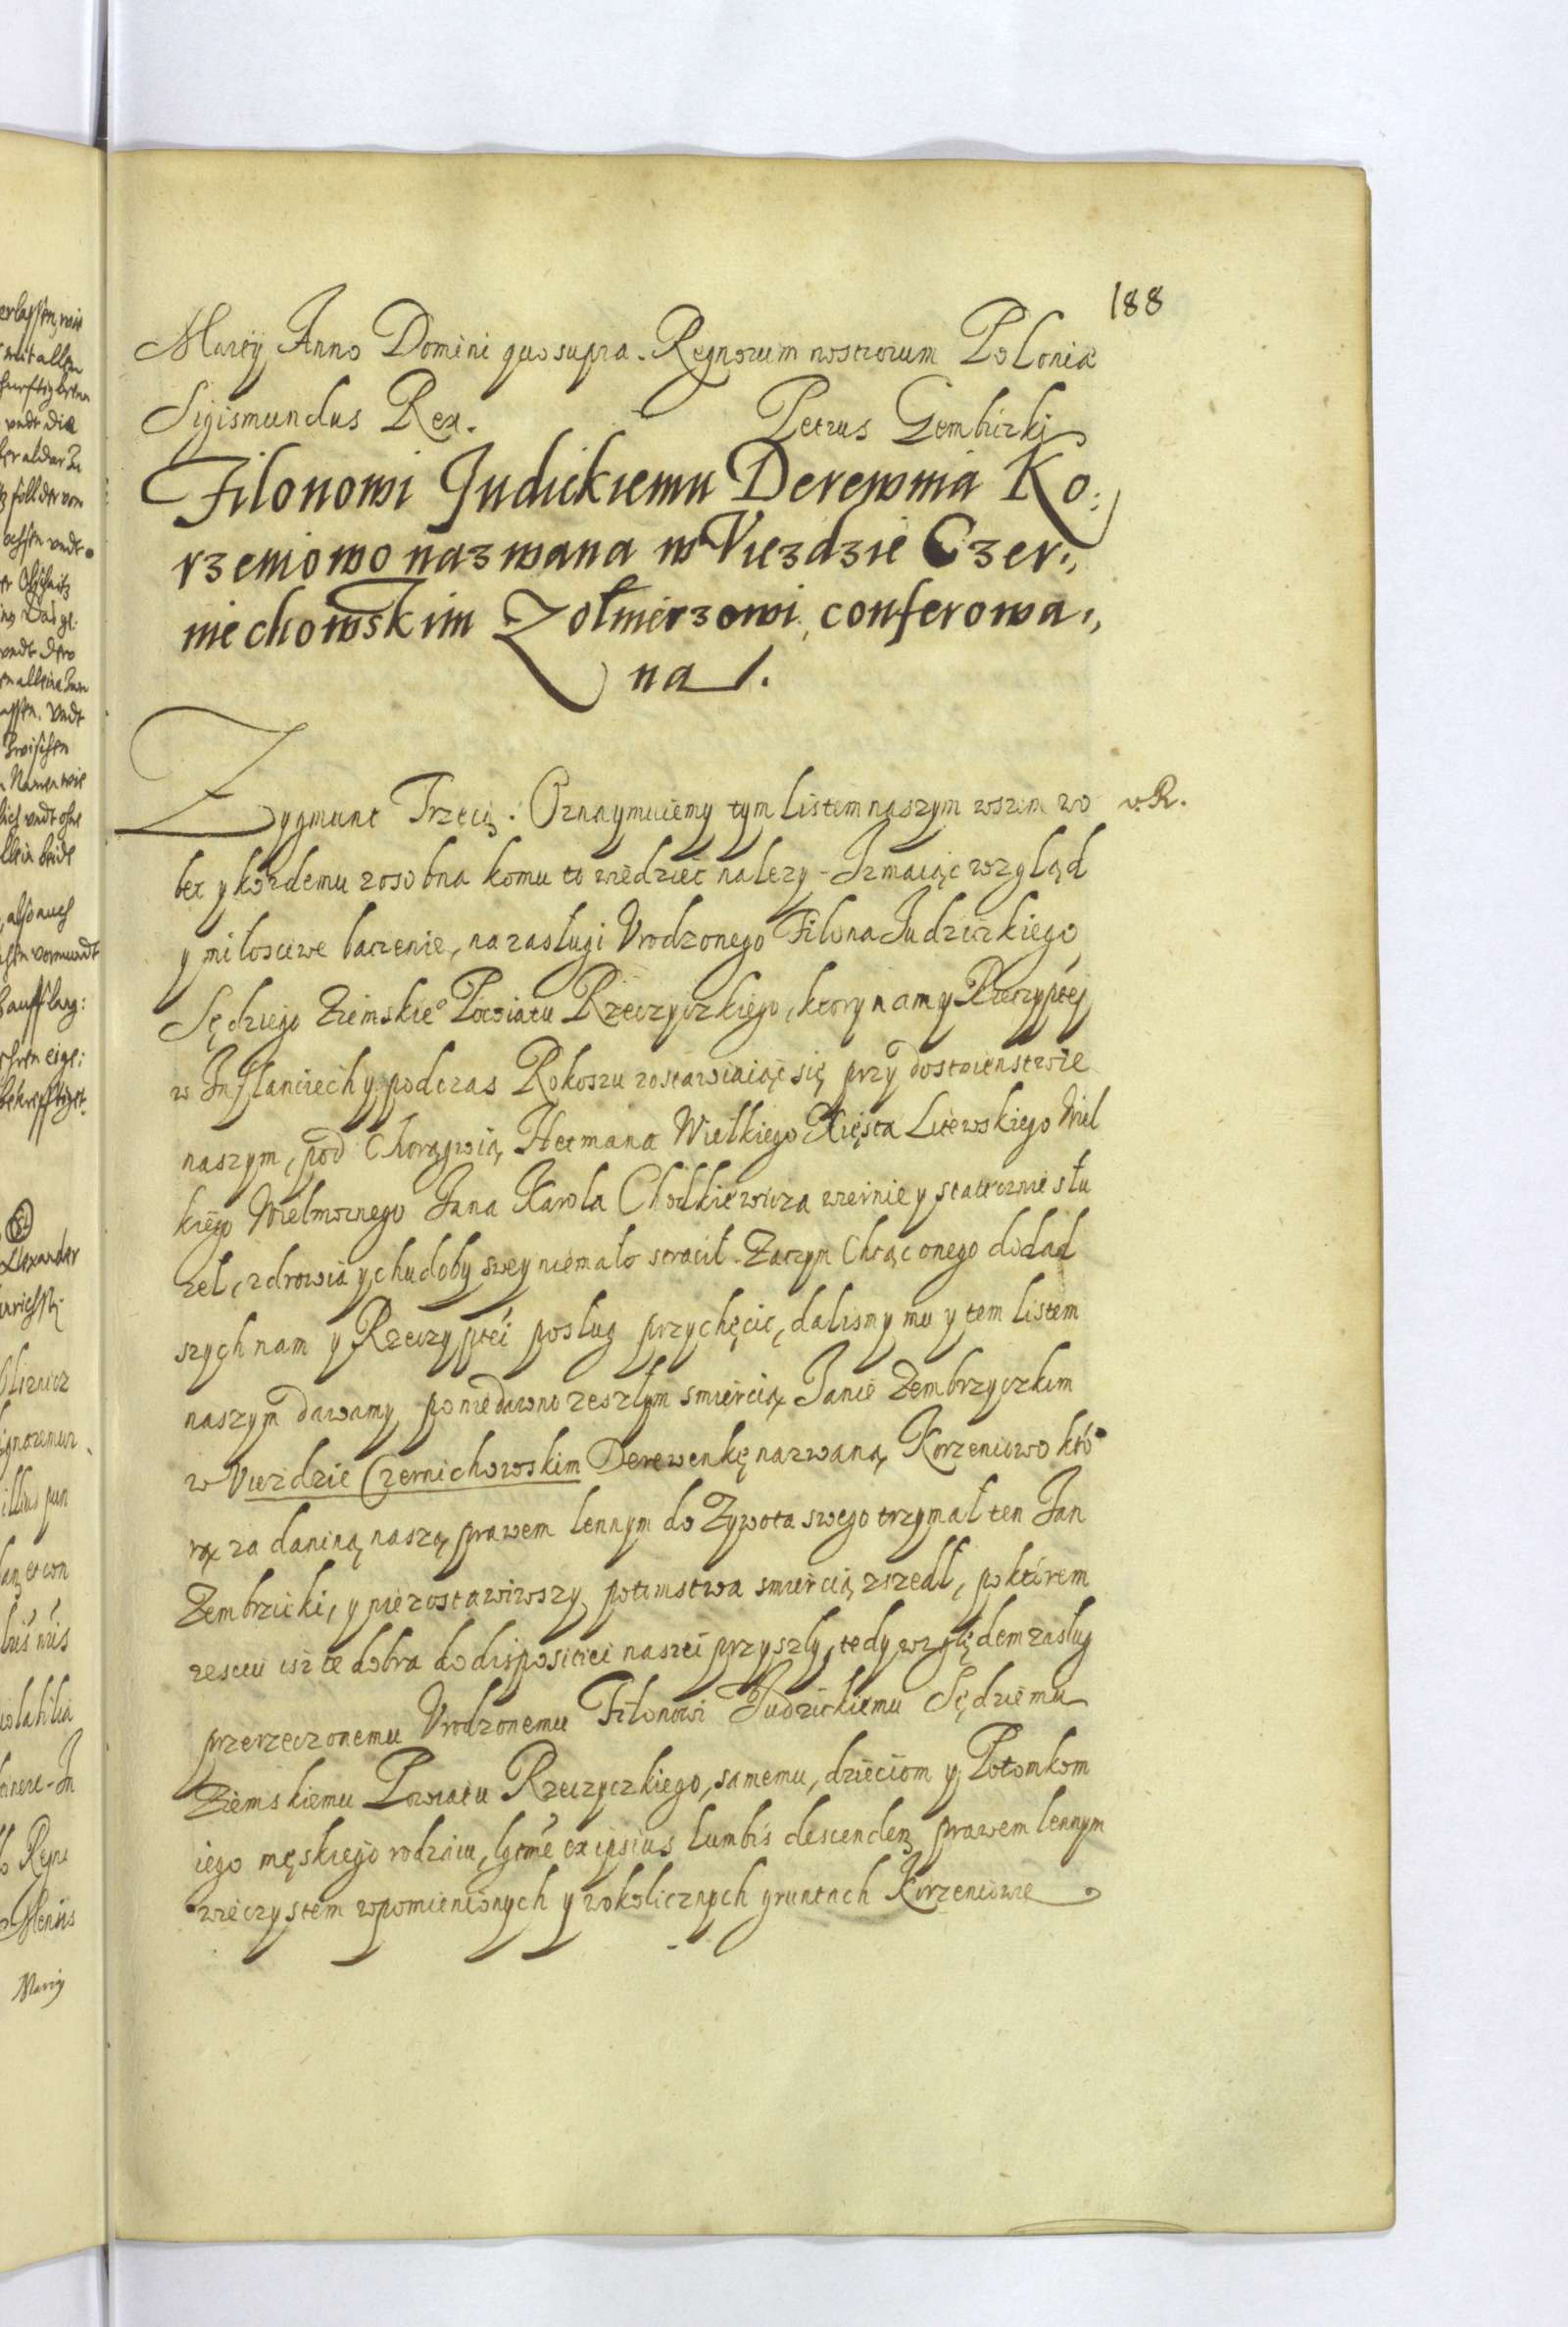 188
Martij Anno Domini quo supra. Regnorum nostrorum Poloniæ
Sigismundus Rex. Petrus Gembicki
Filonowi Judickiemu Derewnia Ko:
rzeniowo nazwana w Viezdzie Czer:,
niechowskim Zołnierzowi conferowa:,
na.
Zygmunt Trzeci. Oznaymuiemy tym Listem naszym wszem wo
bec y kozdemu zosobna komu to wiedziec nalezy. Iz maiąc wzgląd
y miłosciwe baczenie, na zasługi Vrodzonego Filona Judzickiego
Sędziego Ziemskieo Powiatu Rzeczyczkiego, ktory nam y Rzeczyptej
w Inflanciech y podczas Rokoszu zostawiaiąc się przy dostoienstwie
naszym, pod Chorągwią Hetmana Wielkiego Xięsta Litewskiego Wiel
kiego Wielmoznego Jana Karola Chodkiewicza wiernie y statecznie słu
zel, zdrowia y chudoby swey niemało stracił. Zaczym Chcąc onego do dal
szych nam y Rzeczyptei posług przychęcic, dalismy mu y tem listem
naszym dawamy po niedawno zeszłym smiercią Janie Zembrzyczkim
w Viezdzie Czernichowskim Derewenkę nazwaną Korzeniowo któ
rą za daniną naszą prawem lennym do Zywota swego trzymał ten Jan
Zembrzicki, y nie zostawiwszy potomstwa smiercią zszedł, po którem
zesciu isz te dobra do dispositiei naszei przyszly, tedy względem zasług
przerzeczonemu Vrodzonemu Filonowi Judzickiemu Sędziemu
Ziemskiemu Powiatu Rzeczyczkiego, samemu, dzieciom y Potomkom
iego męskiego rodzaiu, lgtme ex ipsius lumbis descenden prawem lennym
wieczystem wpomienionych y w okolicznych gruntach Korzeniowie
v. R.